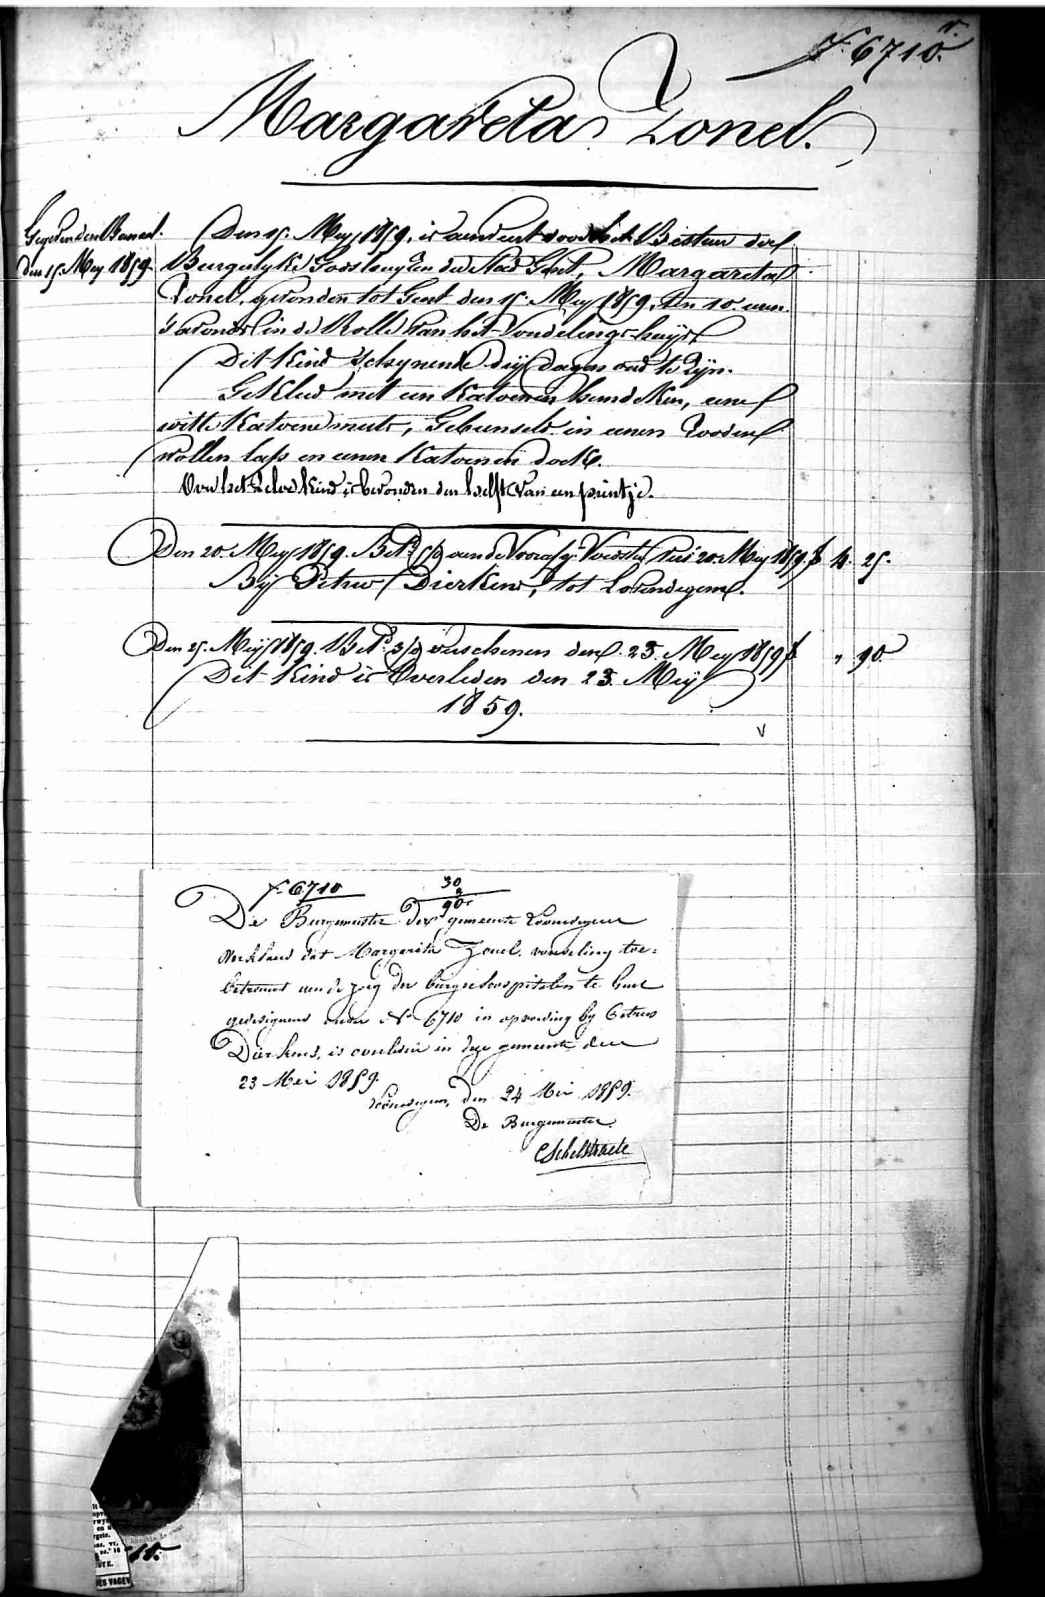 N. 6710.
Margareta Zonel.
Den 15. Mey 1859, is aenveert door het Bestuer der
den 15 Mey 1859.
Burgerlyke Godshuyzen der Stad Gent, Margareta
Zonel, gevonden tot Gent den 15. Mey 1859, ten 10. uren
's avonds in de Rolle van het Vondelings-huys
Dit Kind schynende dry dagen oud te zyn.
Gekleed met een Katoenen hemdeken, eene
witte Katoene muts, Gebunseld in eenen rooden
wollen lap en eenen Katoenen doek.
Over het zelve Kind is bevonden den helft van een printje.
Den 20. Mey 1859. Bet. aen de 20. Mey 1859. f 4. 25.
By Petrus Dierkens, tot Lovendegem.
Den 25. Mey 1859. Bet. verschenen den 23. Mey 1859 f " 90.
Dit Kind is Overleden den 23. Mey
1859.
V
N. 6710 30
90
De Burgmeester der gemeente Lovendegem
verklaerd dat Margarita Zonel, vondeling toe-
betrouwd aen de zorg der burg. hospitalen te Gent
gedesigneerd onder No 6710 in opvoeding by Petrus
Dierkens, is overleden in deze gemeente den
23 Mei 1859.
Lovendegem, den 24 Mei 1859.
De Burgmeester
C Schelstraete